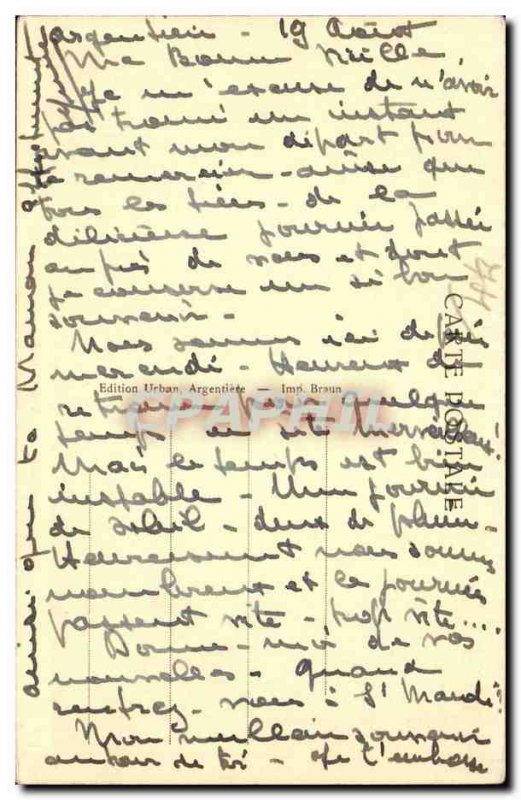 Argentière - 19 Août
Ma Bonne
Je m'excuse de n'avoir
pas trouvé un instant
avant mon départ pour
te remercier - ainsi que
tous les tiens - de la
délicieuse journée passée
auprès de vous et dont
je conserve un si bon
souvenir -
Nous sommes ici depuis
mercredi - Heureux de
Edition Urban, Argentière — Imp. Braun
retrouver pour quelque
temps ce site merveilleux!
Mais le temps est bien
instable - Une journée
de soleil - deux de pluie -
Heureusement nous sommes
nombreux et les journées
passent vite - trop vite....
Donne-moi de vos
nouvelles - Quand
rentrez-vous à St Mandé?
Mon meilleur souvenir
autour de toi - Je t'embrasse
ainsi que ta Maman
CARTE POSTALE
CPAPHIL